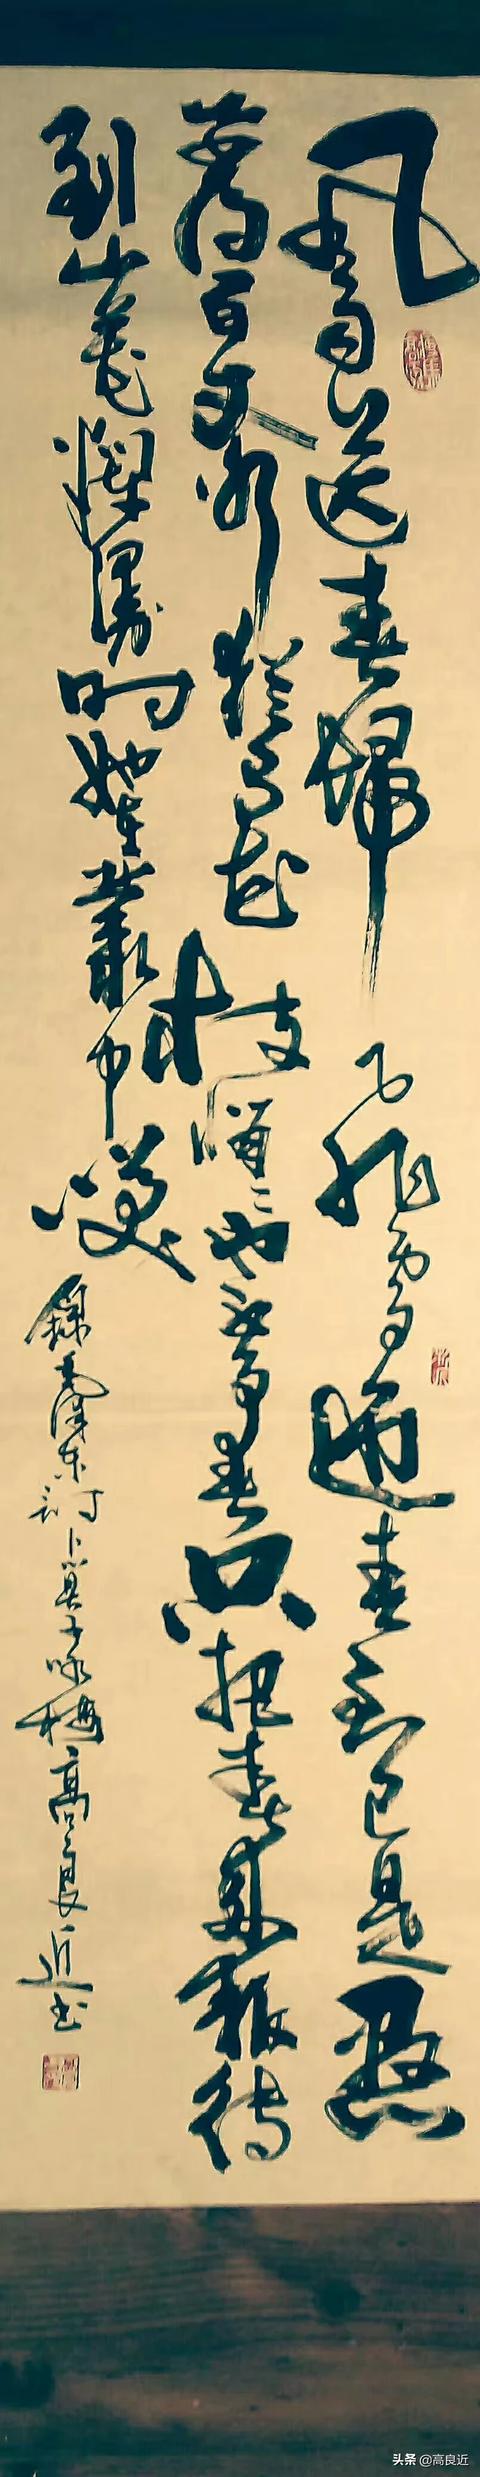 風雨送春歸飛雪迎春到已是懸
崖百丈冰猶有花枝俏〻也不爭春只把春來報待
到山花爛漫时她在叢中笑 錄毛澤东詞卜算子咏梅高良近书
头条 @高良近